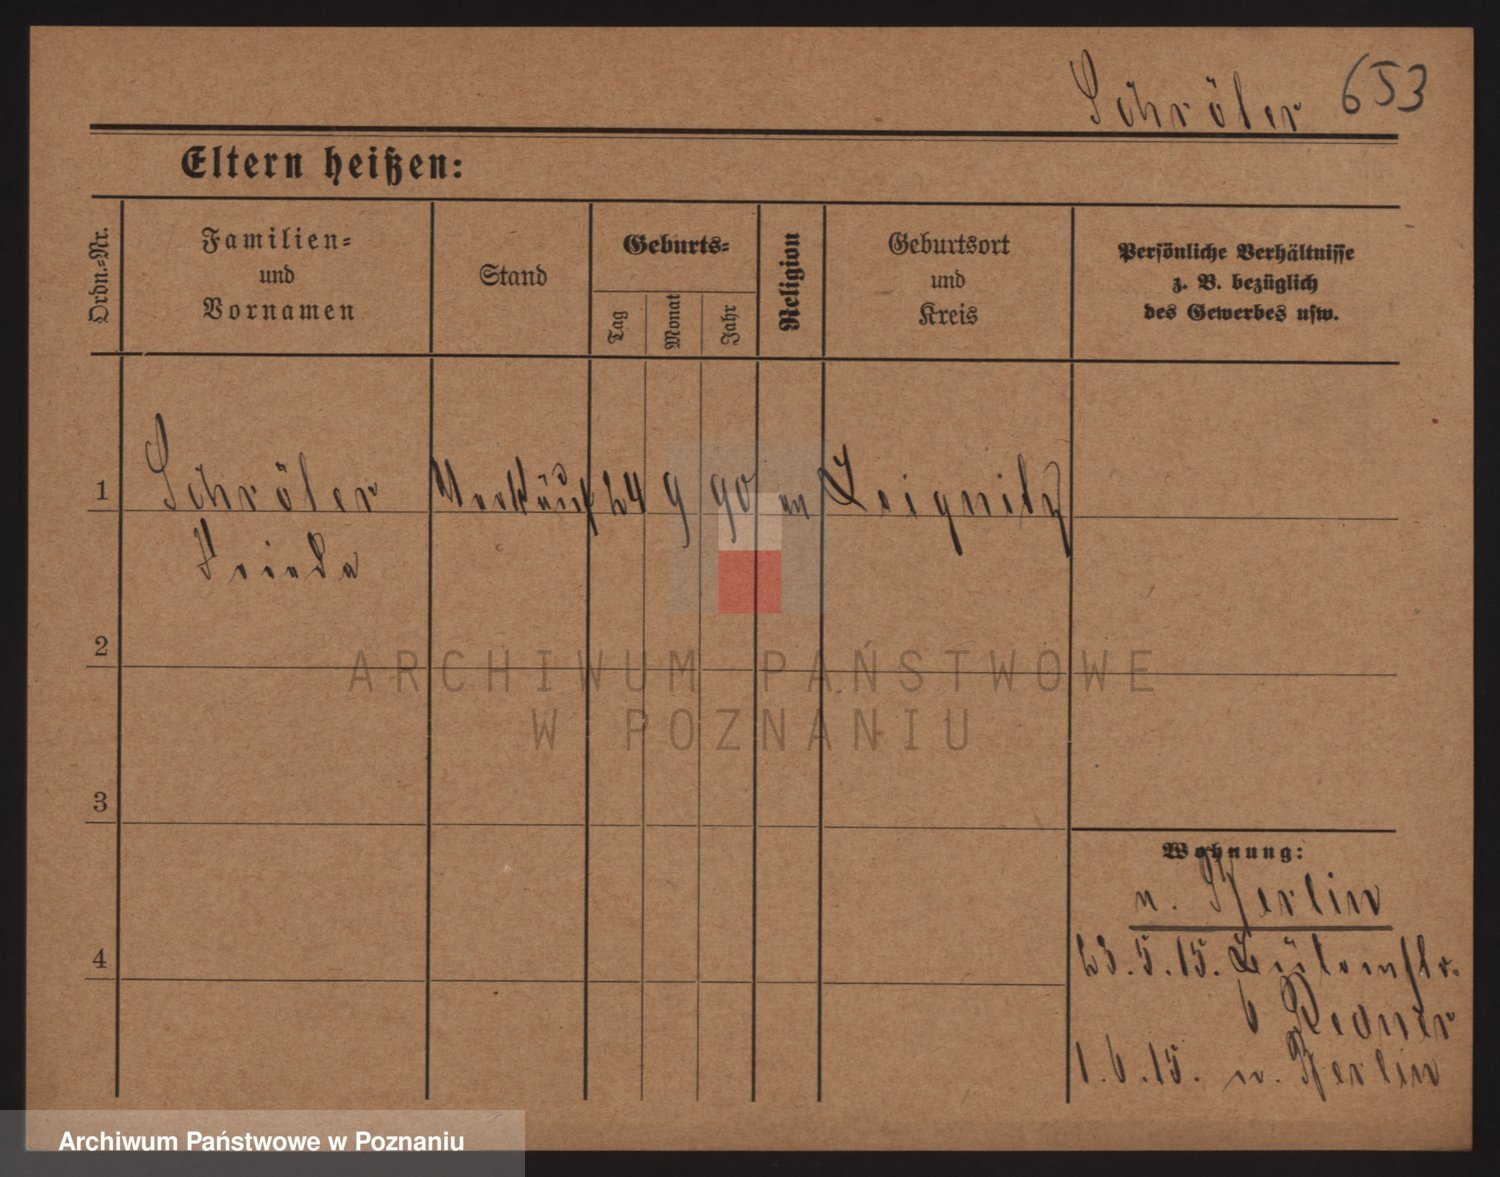 Schröter 653
Eltern heißen:
Ordn.=Nr.
Familien=
und
Vornamen
Stand
Geburts=
Tag
Monat
Jahr
Religion
Geburtsort
und
Kreis
Persönliche Verhältnisse
z. B. bezüglich
des Gewerbes usw.
1 Schröter Verkäuf 24 9 90 ev Leignitz
Frieda
2
3
4
Wohnung:
n. Berlin
23.5.15.
6 Redner
1.6.15. n. Berlin
ARCHIWUM PAŃSTWOWE
W POZNANIU
Archiwum Państwowe w Poznaniu